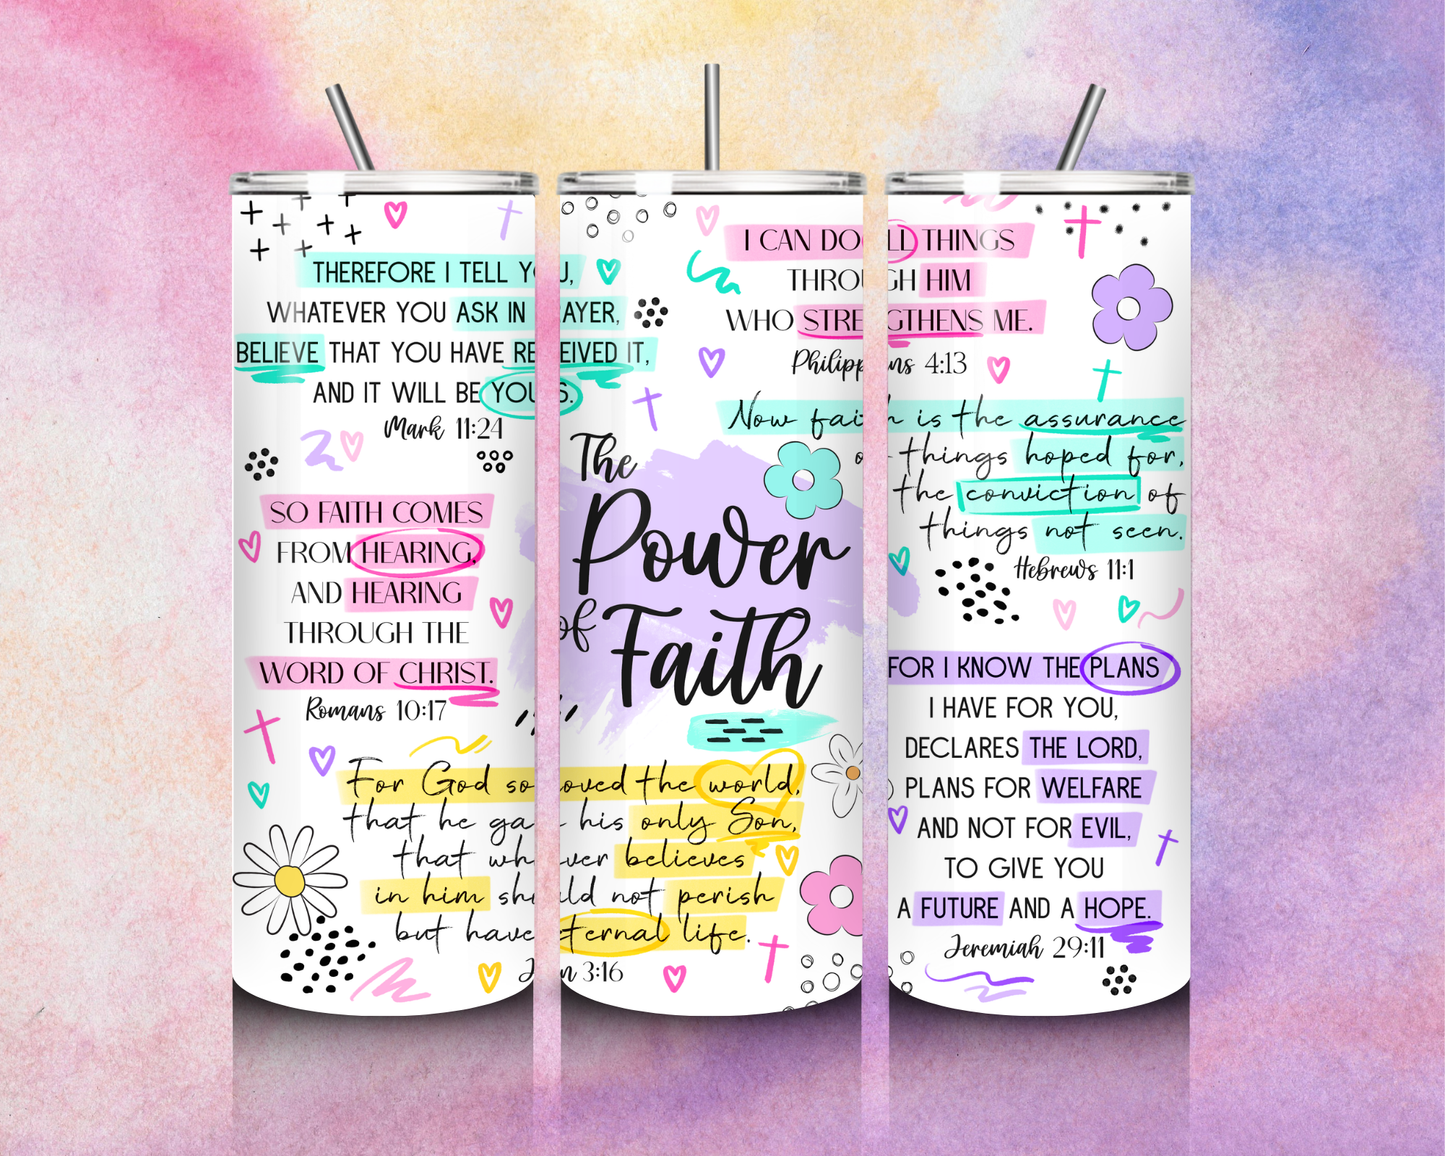 THEREFORE I TELL YOU,
WHATEVER YOU ASK IN AYER,
BELIEVE THAT YOU HAVE RE EIVED IT,
AND IT WILL BE YOU S.
Mark 11:24
SO FAITH COMES
FROM HEARING,
AND HEARING
THROUGH THE
WORD OF CHRIST.
Romans 10:17
For God so oved the world,
that he ga his only Son,
that wh ver believes
in him sh ld not perish
but have ternal life.
J n 3:16
The
Power
of
Faith
I CAN DO LL THINGS
THROUGH HIM
WHO STRE GTHENS ME.
Philipp ns 4:13
Now fai h is the assurance
o things hoped for,
the conviction of
things not seen.
Hebrews 11:1
FOR I KNOW THE PLANS
I HAVE FOR YOU,
DECLARES THE LORD,
PLANS FOR WELFARE
AND NOT FOR EVIL,
TO GIVE YOU
A FUTURE AND A HOPE.
Jeremiah 29:11